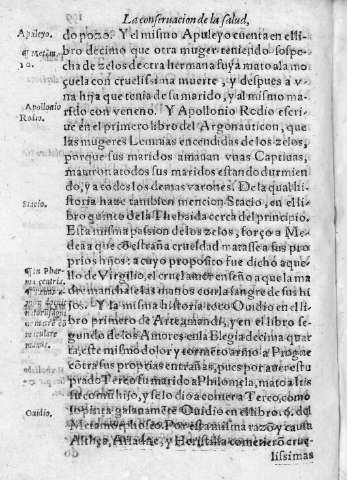 La conseruacion de la salud,
Apuleyo.
do pozo. Y el mismo Apuleyo cuenta en el li-
bro decimo que otra muger teniendo sospe-
cha de zelos de otra hermana suya mato a la mo
çuela con cruelissima muerte, y despues a v-
na hija que tenia de su marido, y al mismo ma-
Apollonio
Rodio.
rido con veneno. Y Apollonio Rodio escri-
ue en el primero libro del Argonauticon, que
las mugeres Lemnias encendidas de los zelos,
porque sus maridos amauan vnas Captiuas,
mataron a todos sus maridos estando durmien
do, y a todos los demas varones. De la qual his
Stacio.
toria haze tambien mencion Stacio, en el li-
bro quinto de la Thebaida cerca del principio.
Esta misma passion de los zelos, forço a Me-
dea a que cõ estraña crueldad matasse a sus pro
prios hijos: a cuyo proposito fue dicho aque-
llo de Virgilio, el cruel amor enseño a que la ma
dre manchasse las manos con la sangre de sus hi
jos. Y la misma historia toco Ouidio en el li
bro primero de Arte amandi, y en el libro se-
gundo de los Amores en la Elegia decima quar
ta, este mismo dolor y tormẽto armo a Progne
cõtra sus proprias entrañas, pues por auer estu
prado Tereo su marido a Philomela, mato a Itis
su comũ hijo, y se lo dio a comer a Tereo, como
Ouidio.
lo pinta galanamẽte Ouidio en el libro. 6. del
Metamorphoseo. Por esta misma razõ y causa
y cometierõ crue
lissimas